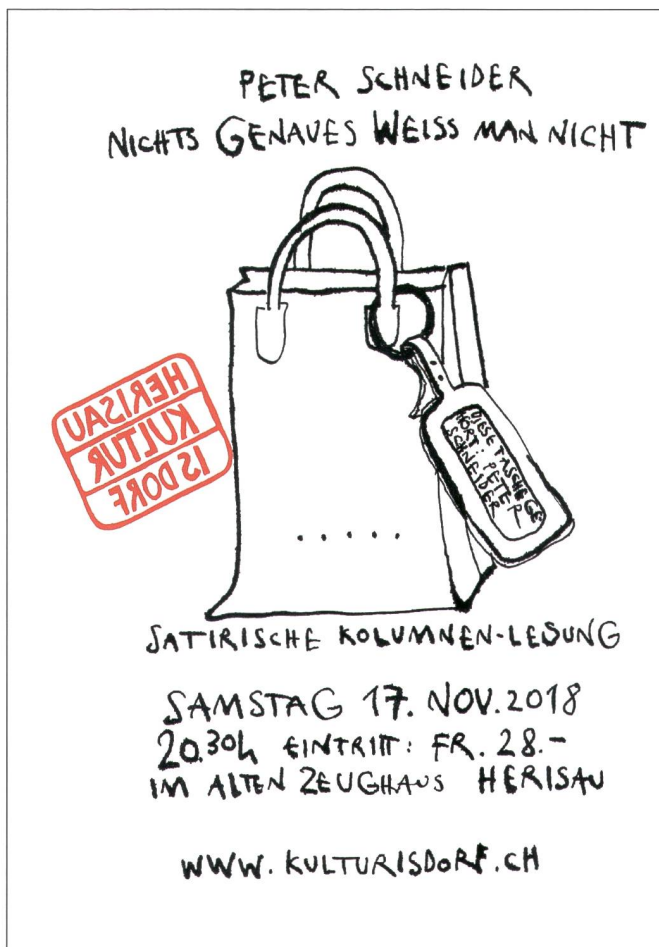 PETER SCHNEIDER
NICHTS GENAUES WEISS MAN NICHT
HERISAU
KULTUR
IS DORF
DIESE TASCHE GE
HÖRT: PETER
SCHNEIDER
SATIRISCHE KOLUMNEN-LESUNG
SAMSTAG 17. NOV. 2018
20.30h EINTRITT: FR. 28.-
IM ALTEN ZEUGHAUS HERISAU
WWW.KULTURISDORF.CH